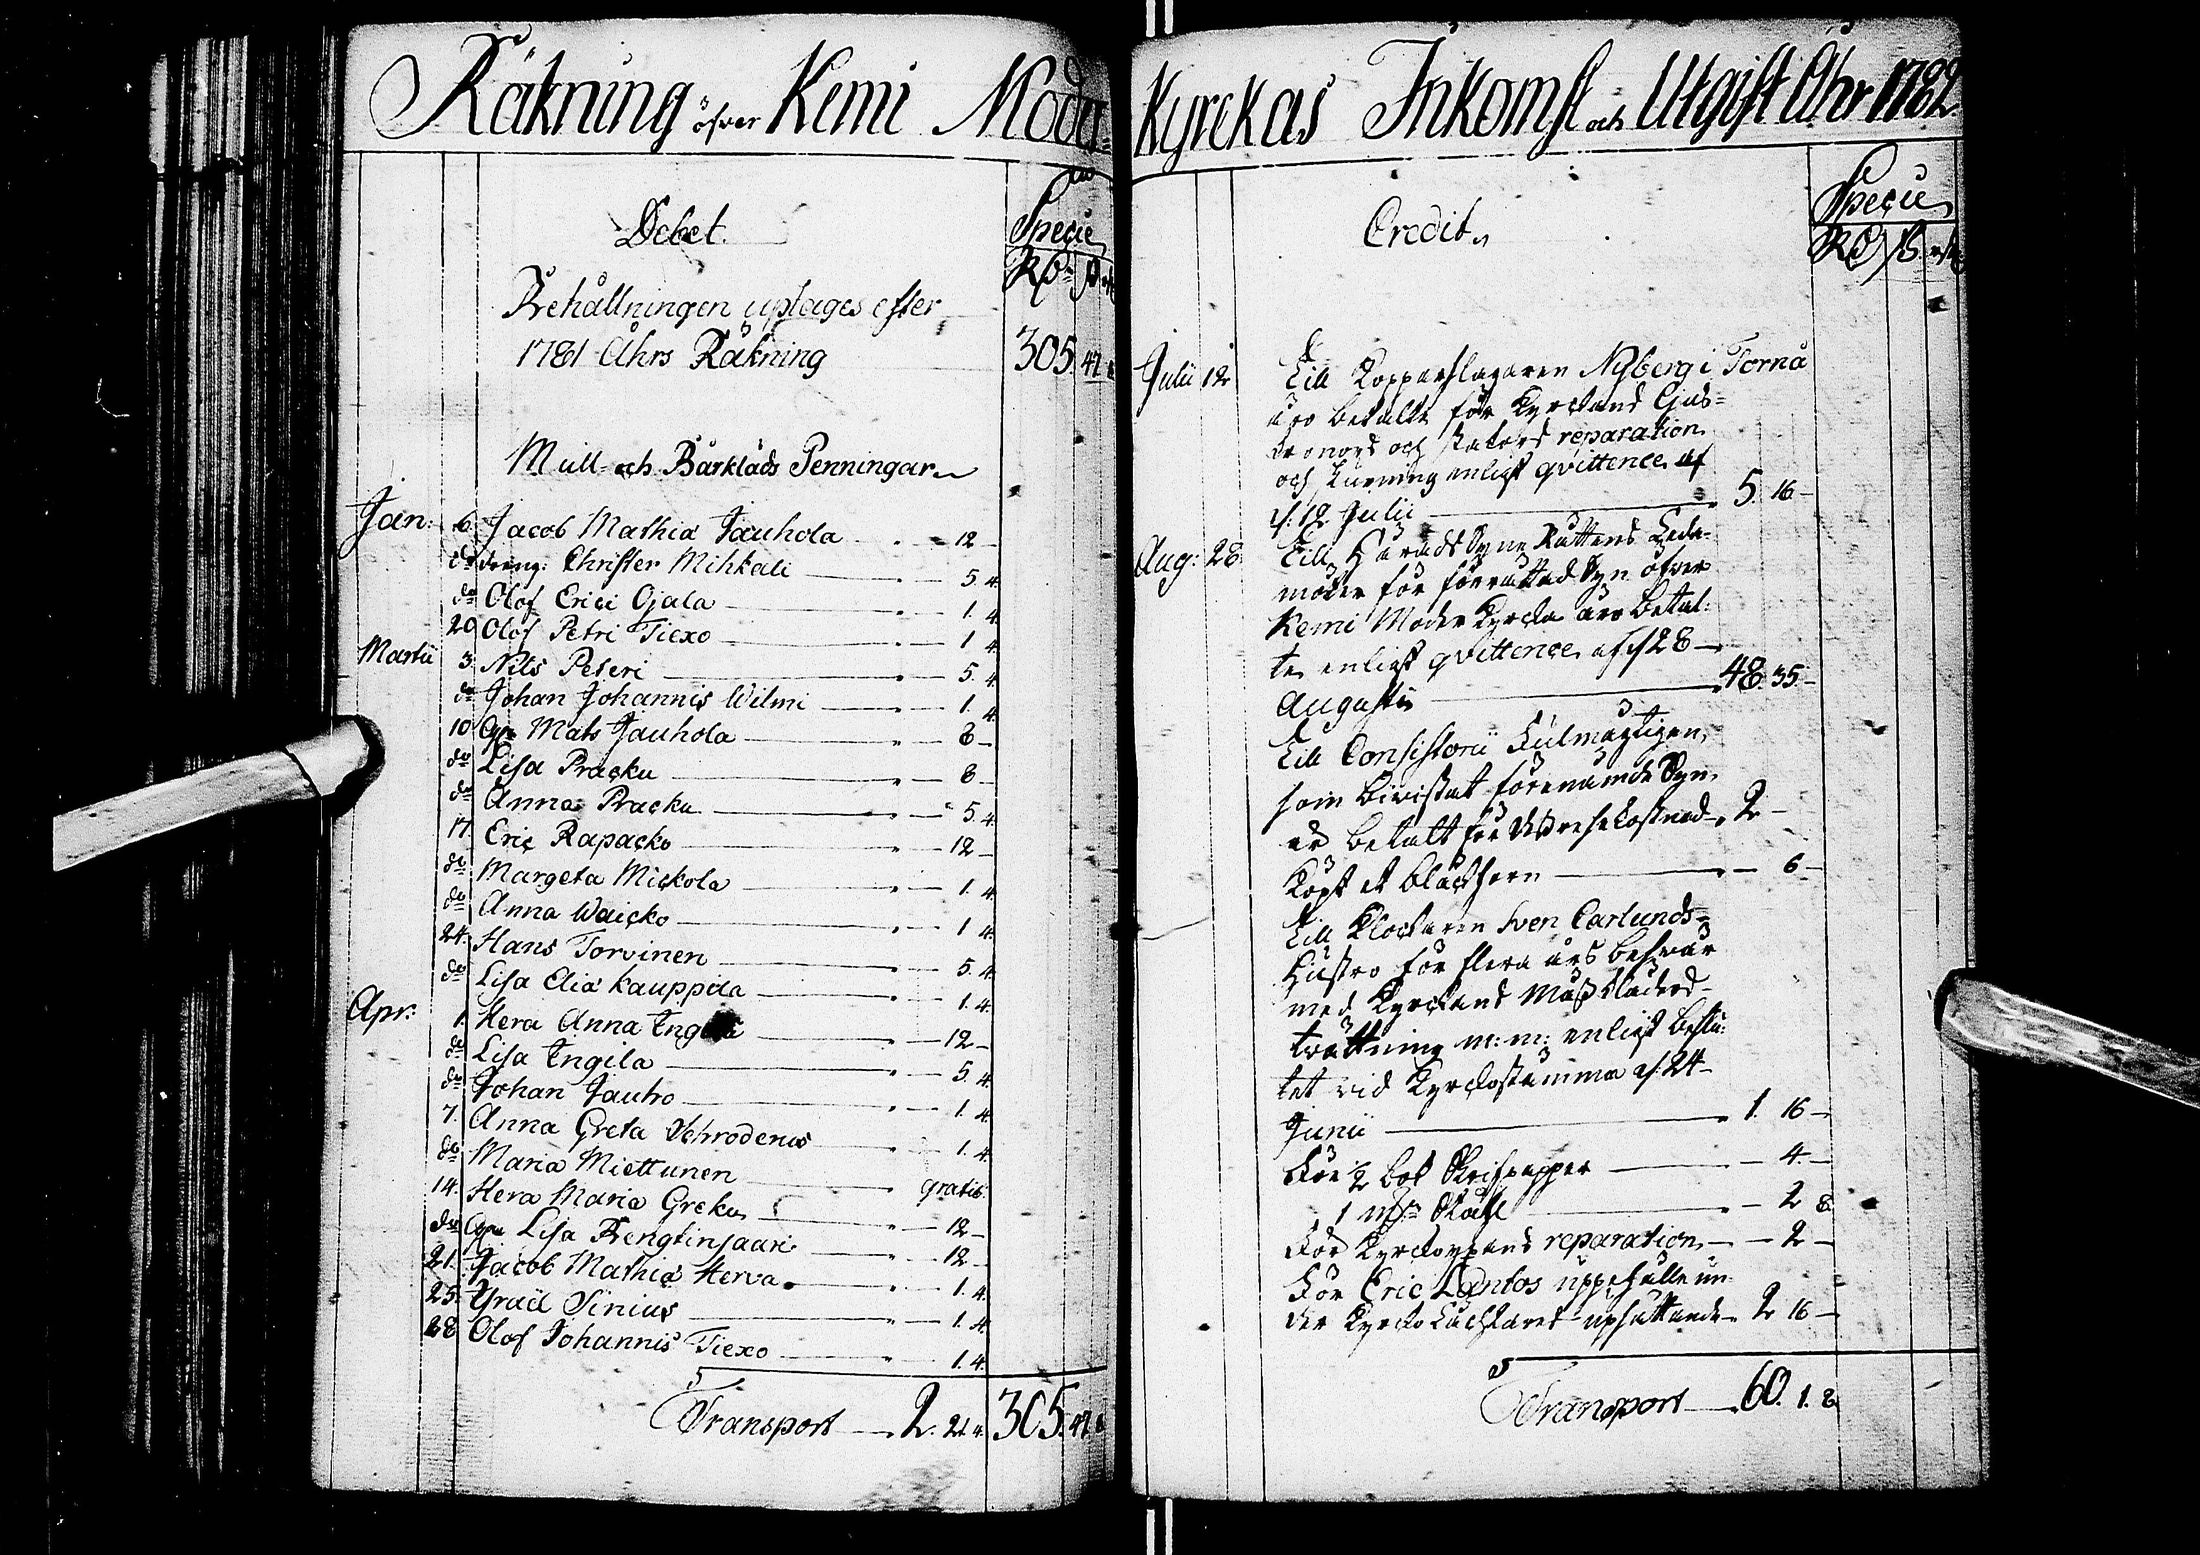 Räkning öfver Kemi Moder-
Debet.
Specie
Rd
Behållningen uptages efter
1781 Åhrs Räkning 305. 47
Mull- och Bårkläds Penningar
Jan: 6. Jacob Mathiæ Jauhola - 12 -
do dreng: Christer Mihkali - 5. 4.
do Olof Erici Ojala - 1. 4.
20 Olof Petri Tiexo - 1 4.
Martii 3. Nils Peteri - 5. 4.
do Johan Johannis Wilmi - 1. 4.
10. Mats Jauhola - 8 -
do Lisa Pracku - 8 -
do Anna Pracku - 5. 4.
17. Eric Rapacko - 12 -
do Margeta Mickola - 1. 4.
do Anna Waicko - 1 4.
24. Hans Torvinen - 5. 4.
do Lisa Eliæ Kauppila - 1. 4.
Apr: 1. Hera Anna - 12 -
do Lisa Ingila - 5. 4.
do Johan Jauho - 1. 4.
7. Anna Greta Schroderus - 1. 4.
do Maria Miettunen - gratis.
14. Hera Maria Greku - 12 -
do Lisa Bengtinsaari - 12 -
21. Jacob Mathiæ Herva - 1. 4.
25. Israël Sinius - 1. 4.
28 Olof Johannis Tiexo - 1. 4.
Transport 2. 21. 4. 305. 47
Kyrckas Inkomst och Utgift Åhr 1782.
Credit.
Specie
Rd ß
Julii 12 Till Kopparslagaren Nyberg i Torneå
äro betalte för Kyrckans Ljus-
cronors och reparation
och enligt qvittence af
d. 12 Julii - 5. 16 -
Aug: 28. Till Härads Syne Rättens Leda-
möter för förrättad Syn öfver
Kemi Moder Kyrcka äro betal-
te enligt qvittence af d 28
Augusti - 48. 35. -
Till Consistorii Fulmägtigen,
som bivistat förenämde Syn,
är betalt för desse kostnad - 2 -
Köpt et bläckhorn - 6 -
Till Klockaren Sven Carlunds
Hustro för flera års besvär
med Kyrckans Mässkläders
tvättning m: m: enligt beslu-
tet vid Kyrckostämma d. 24
Junii - 1. 16 -
För 1/2 bok Skrifpapper - 4. -
1 - 2 8.
För Kyrckoyxans reparation - 2 -
För Eric Lantos uppehälle un-
der Kyrko upsättande - 2 16 -
Transport 60. 1. 8.